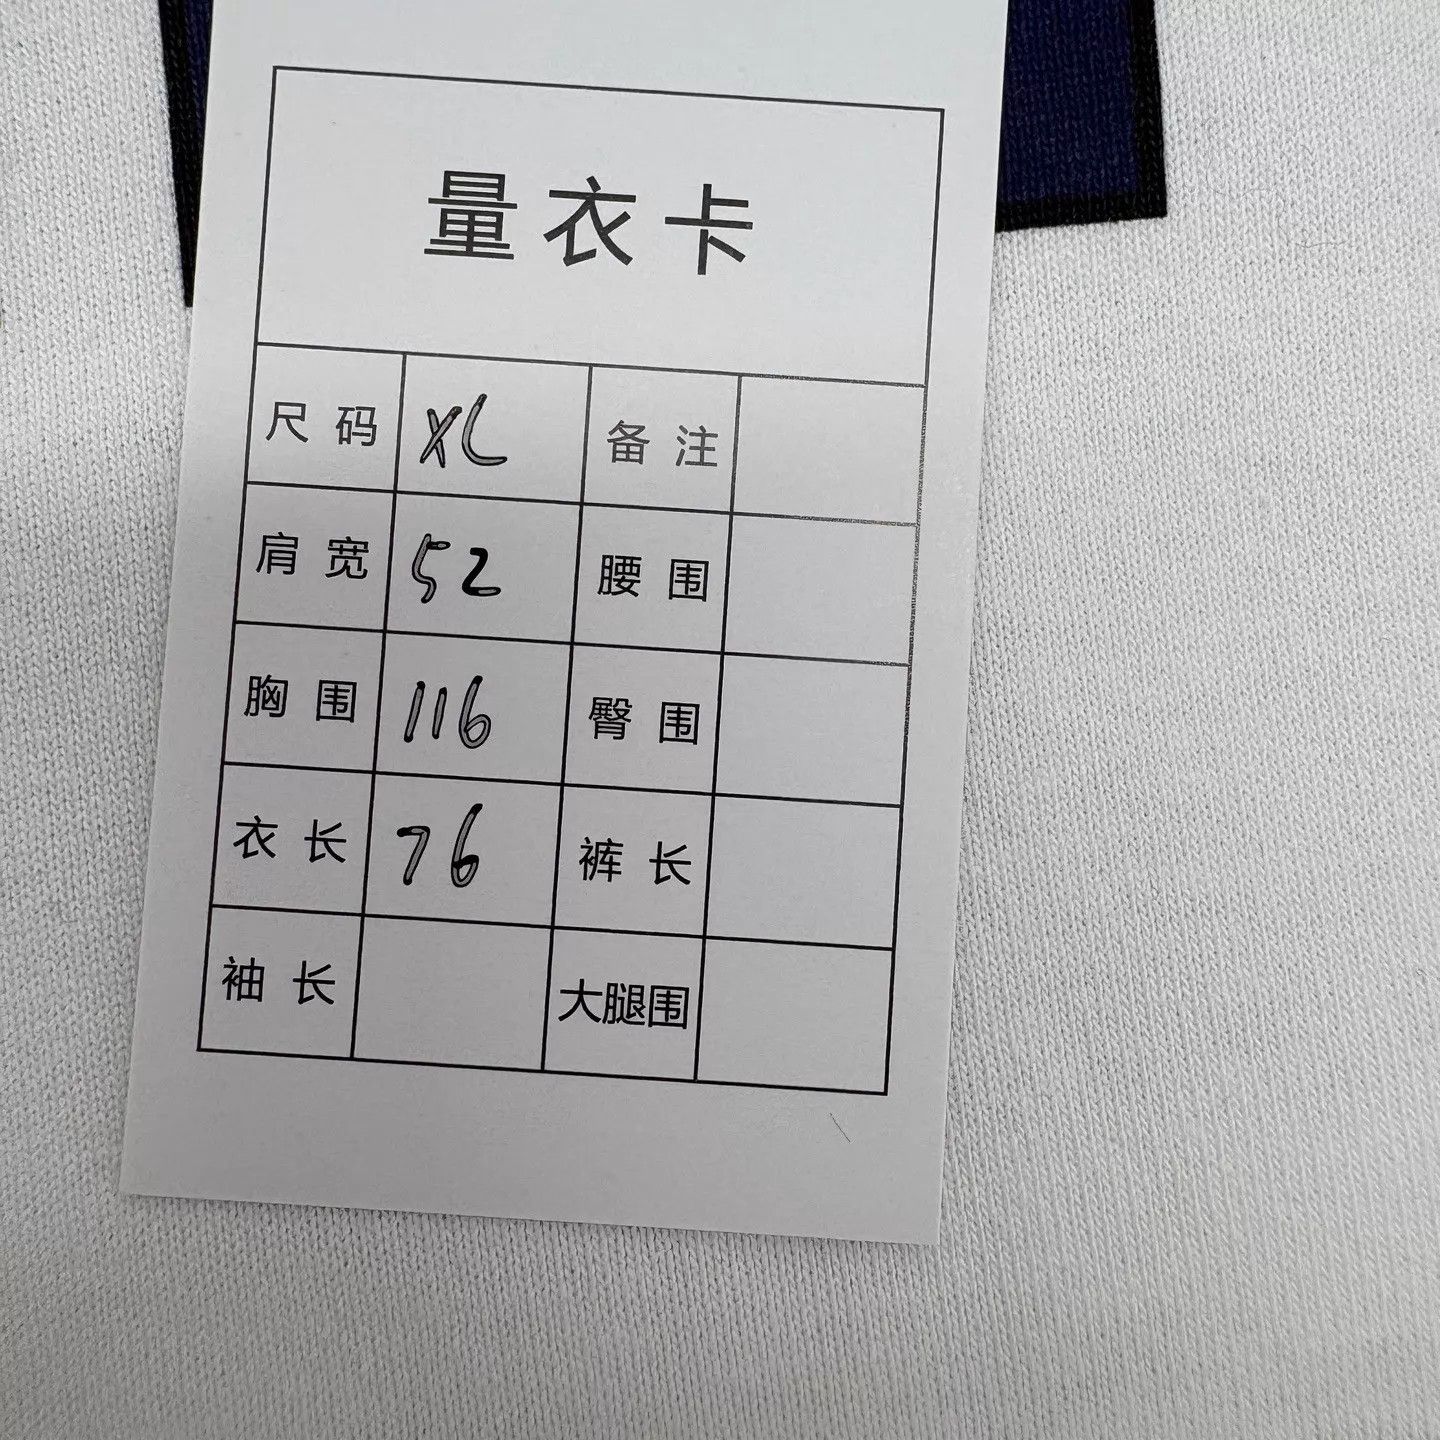 量衣卡
尺码 XL 备注
肩宽 52 腰围
胸围 116 臀围
衣长 76 裤长
袖长 大腿围